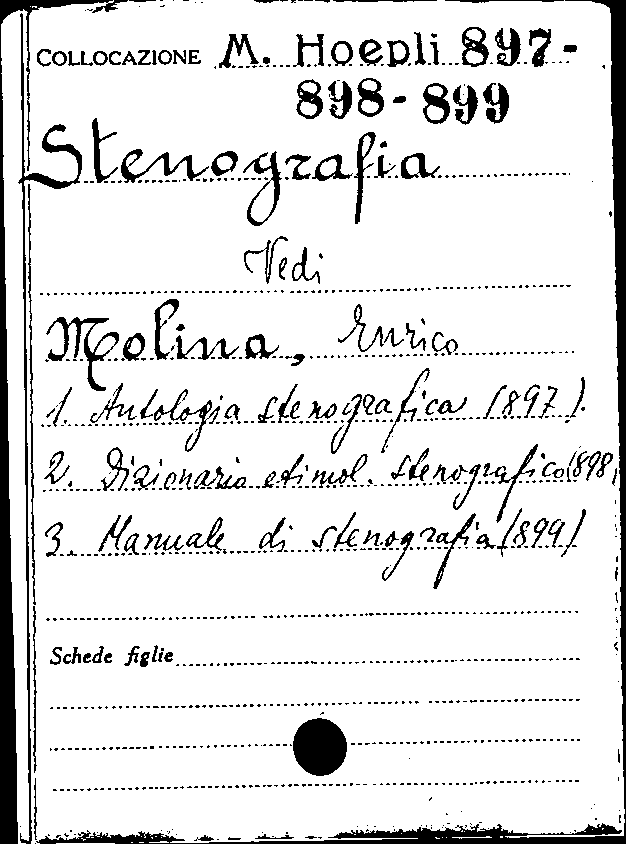 COLLOCAZIONE M. Hoepli 897-
898-899
Stenografia
Vedi
Molina, Enrico
1. Antologia stenografica (897).
2. Dizionario etimol. stenografico (898)
3. Manuale di stenografia (899)
Schede figlie